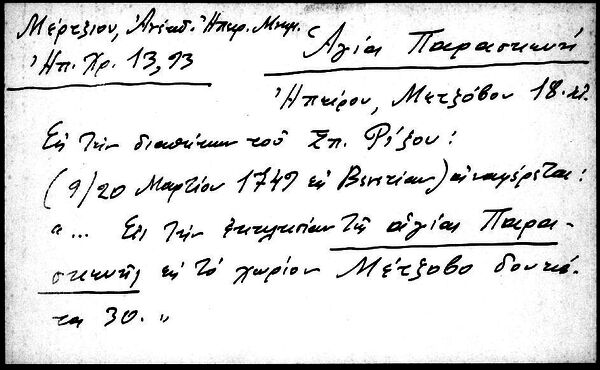 Μέρτζιου, Ἀνέκδ. Ἠπειρ. Μνημ.
Ἠπ. Χρ. 13, 93
Ἁγία Παρασκευή
Ἠπείρου, Μετζόβου 18. αἰ.
Εἰς τὴν διαθήκην τοῦ Σπ. Ρίζου:
(9/20 Μαρτίου 1749 ἐν Βενετίαν) ἀναφέρεται:
"... Εἰς τὴν ἐκκλησίαν τῆς ἁγίας Παρα-
σκευῆς εἰς τὸ χωρίον Μέτζοβο δουκά-
τα 30."